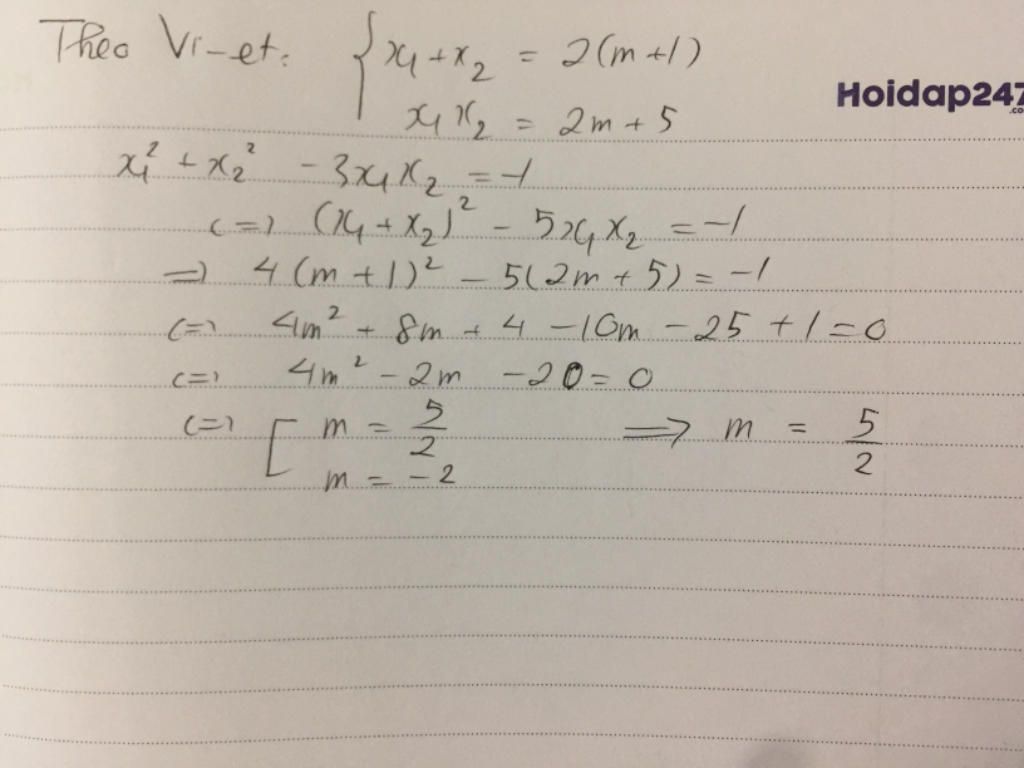 Theo Vi-et: { x₁ + x₂ = 2(m+1)
x₁x₂ = 2m + 5
Hoidap247
.co
x₁² + x₂² - 3x₁x₂ = -1
(=) (x₁ + x₂)² - 5x₁x₂ = -1
=) 4(m + 1)² - 5(2m + 5) = -1
(=) 4m² + 8m + 4 - 10m - 25 + 1 = 0
(=) 4m² - 2m - 20 = 0
(=) [ m = 5/2 => m = 5/2
m = -2